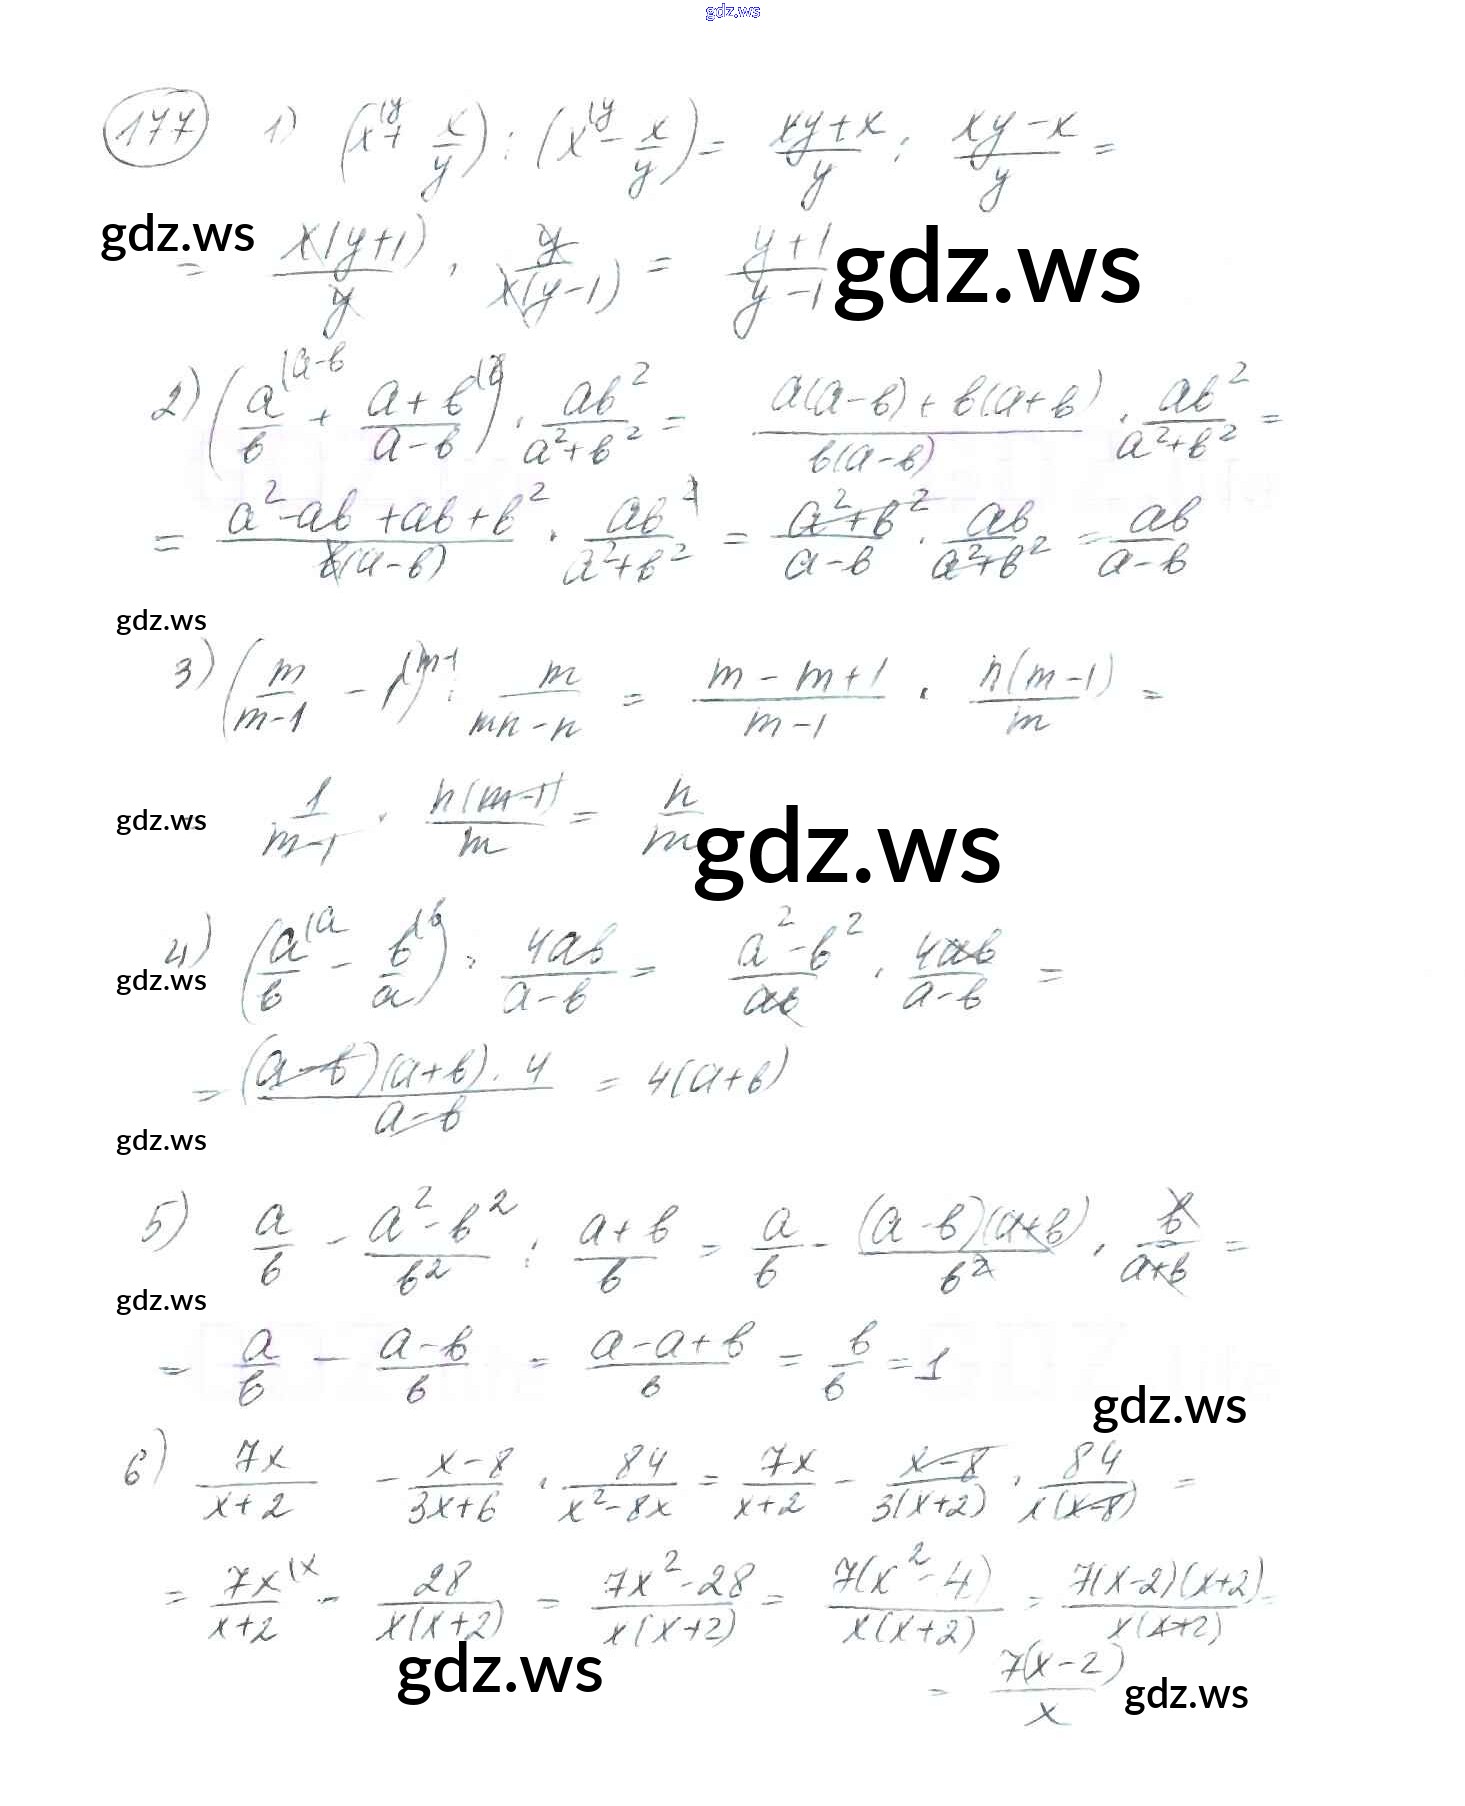 gdz.ws
177 1) (x^(y + x/y) : (x^(y - x/y) = (xy+x)/y : (xy-x)/y =
gdz.ws = x(y+1)/y · y/(x(y-1)) = (y+1)/(y-1) gdz.ws
2) (a/b^(a-b + (a+b)/(a-b)^(b) · ab²/(a²+b²) = (a(a-b)+b(a+b))/(b(a-b)) · ab²/(a²+b²) =
= (a²-ab+ab+b²)/(b(a-b)) · ab²/(a²+b²) = (a²+b²)/(a-b) · ab/(a²+b²) = ab/(a-b)
gdz.ws
3) (m/(m-1) - 1^(m-1) : m/(mn-n) = (m-m+1)/(m-1) · n(m-1)/m =
gdz.ws = 1/(m-1) · n(m-1)/m = n/m gdz.ws
4) (a/b^(a - b/a^(b) · 4ab/(a-b) = (a²-b²)/ab · 4ab/(a-b) =
gdz.ws
= (a-b)(a+b)·4/(a-b) = 4(a+b)
gdz.ws
5) a/b - (a²-b²)/b² : (a+b)/b = a/b - (a-b)(a+b)/b² · b/(a+b) =
gdz.ws
= a/b - (a-b)/b = (a-a+b)/b = b/b = 1
gdz.ws
6) 7x/(x+2) - (x-8)/(3x+6) · 84/(x²-8x) = 7x/(x+2) - (x-8)/(3(x+2)) · 84/(x(x-8)) =
= 7x^(x/(x+2) - 28/(x(x+2)) = (7x²-28)/(x(x+2)) = 7(x²-4)/(x(x+2)) = 7(x-2)(x+2)/(x(x+2)) =
gdz.ws = 7(x-2)/x gdz.ws